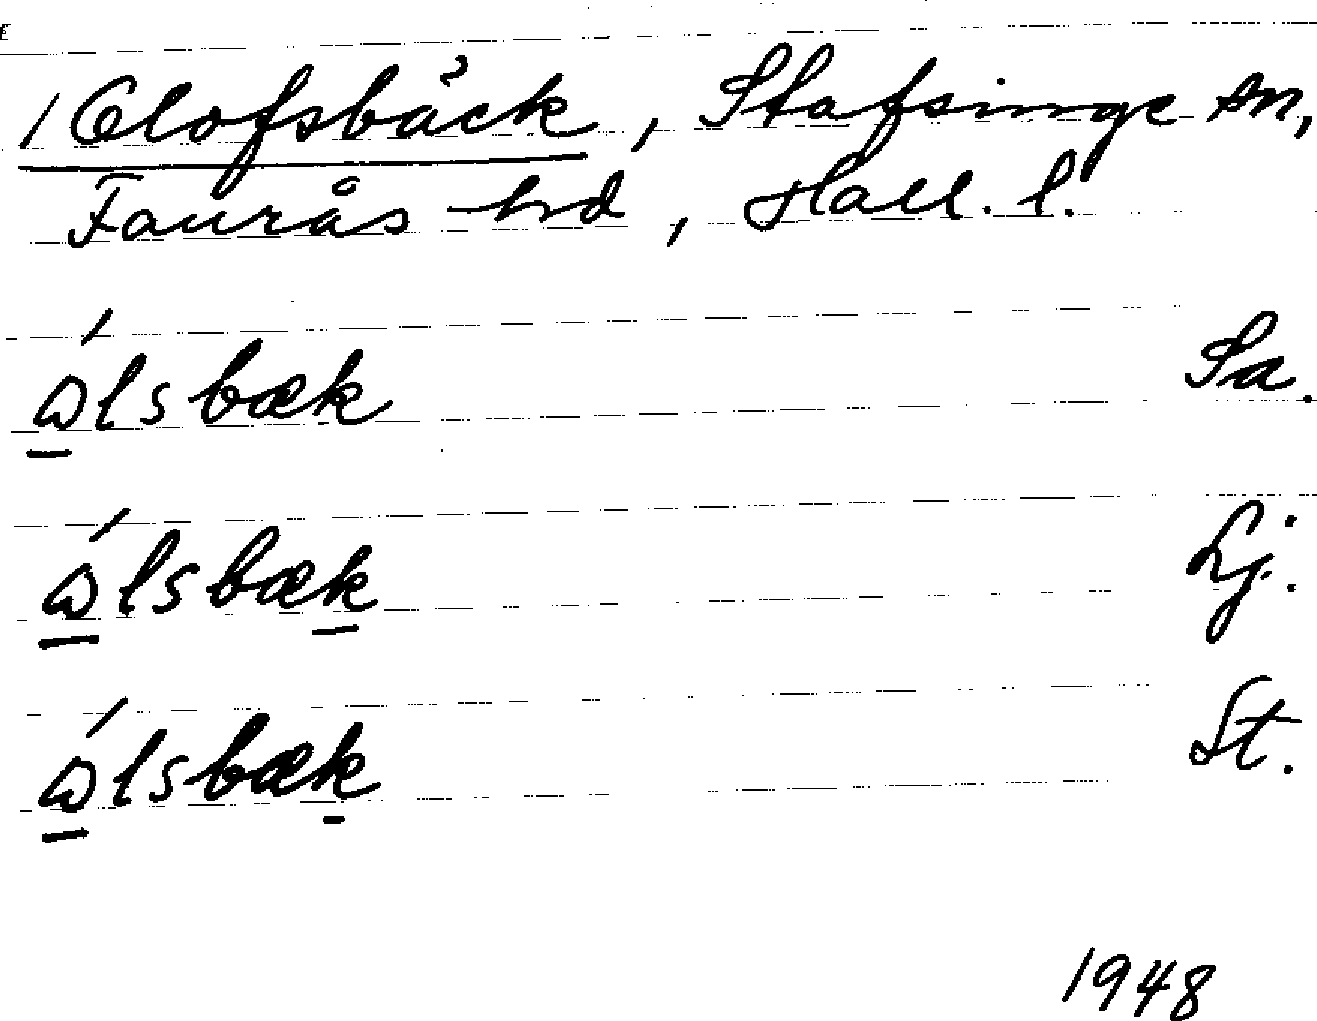 / Olofsbäck, Stafsinge sn,
Faurås hd, Hall. l.
ώlsbæk Sa.
ώlsbæk Lj.
ώlsbæk St.
1948